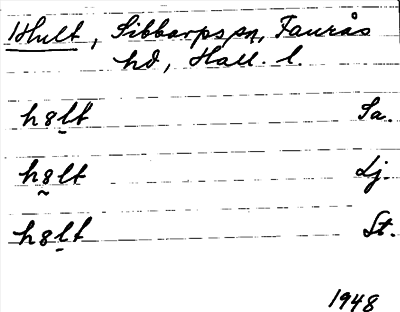 Hult, Sibbarps sn, Faurås
hd, Hall. l.
h8lt Sa.
h8lt Lj.
h8lt St.
1948